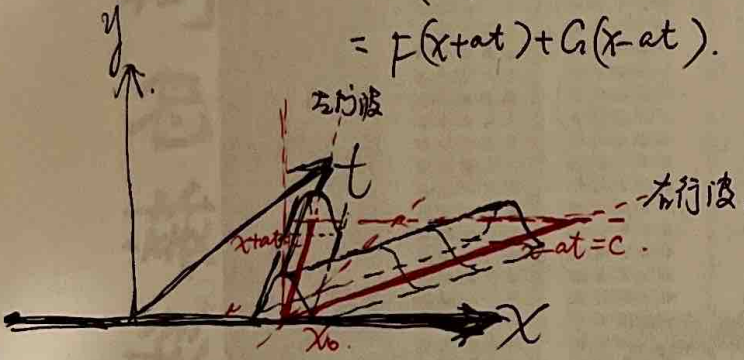 = F(x+at)+G(x-at).
y
左行波
t
右行波
x+at=C
x-at=C.
x₀
X